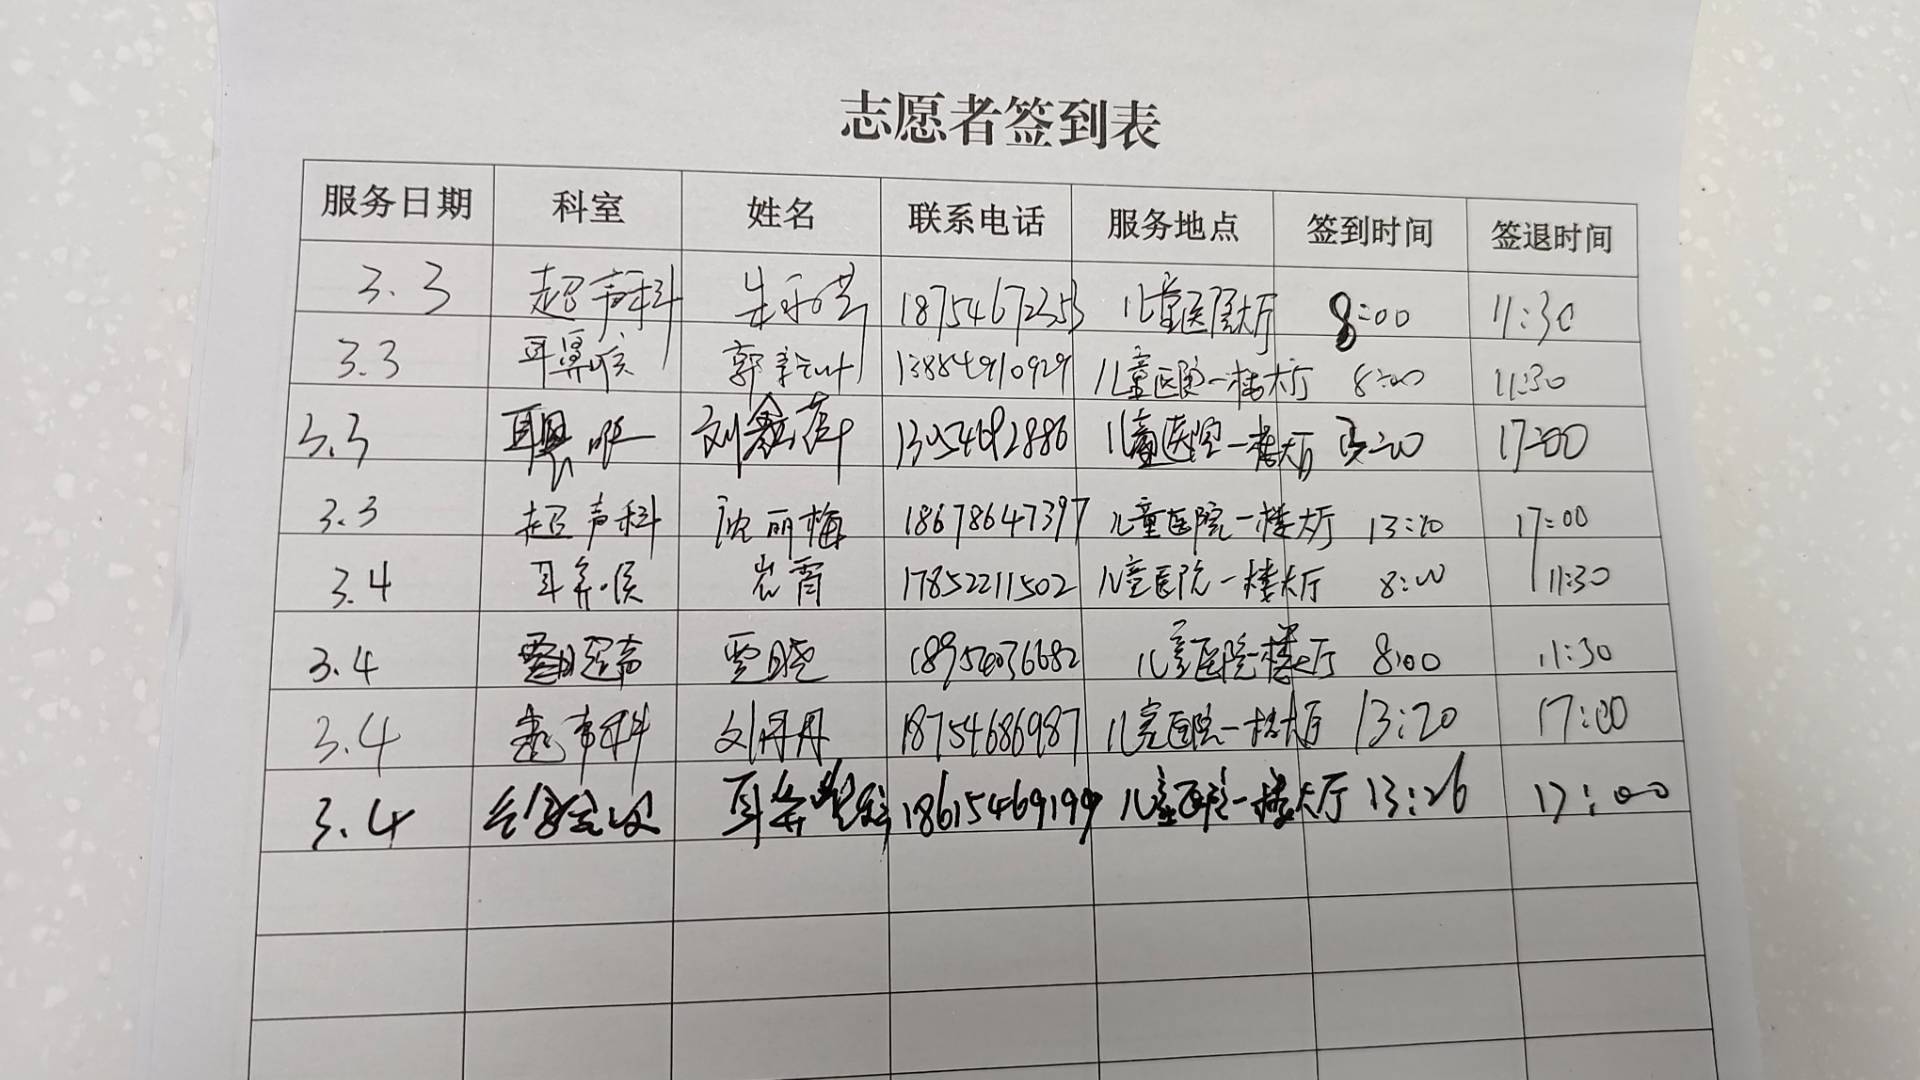 志愿者签到表
服务日期 科室 姓名 联系电话 服务地点 签到时间 签退时间
3.3 超声科 18754672353 儿童医院大厅 8:00 11:30
3.3 耳鼻喉 郭 13884910929 儿童医院一楼大厅 8:00 11:30
3.3 刘鑫萍 13054692886 儿童医院一楼大厅 17:00
3.3 超声科 沈丽梅 18678647397 儿童医院一楼大厅 13:20 17:00
3.4 耳鼻喉 崔霄 17852211502 儿童医院一楼大厅 8:00 11:30
3.4 超声 贾晓 18954036682 儿童医院一楼大厅 8:00 11:30
3.4 超声科 刘丹丹 18754686987 儿童医院一楼大厅 13:20 17:00
3.4 18615469199 儿童医院一楼大厅 13:26 17:00